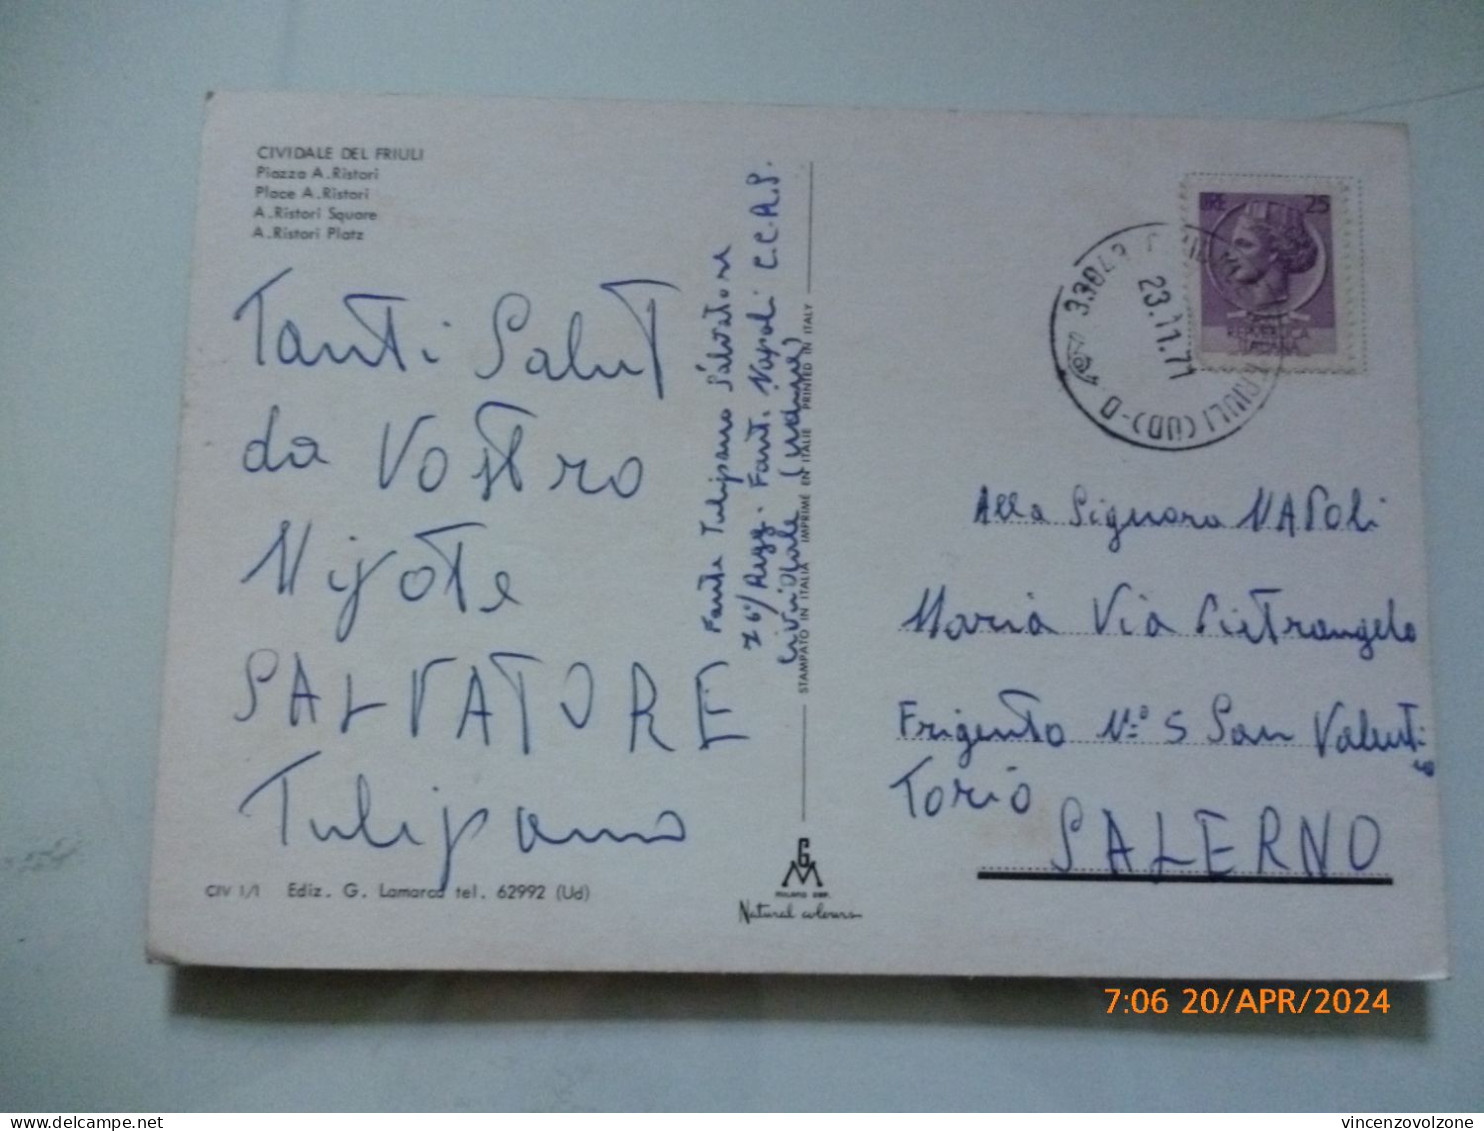 CIVIDALE DEL FRIULI
Piazza A.Ristori
Place A.Ristori
A.Ristori Square
A.Ristori Platz
Tanti Salut
da Vostro
Nipote
SALVATORE
Tulipano
CIV 1/1 Ediz. G. Lamarca tel. 62992 (Ud)
Fante Tulipano Salvatore
76°/Regg. Fant. Napoli C.C.A.P.
Cividale (Udine)
STAMPATO IN ITALIA IMPRIME EN ITALIE PRINTED IN ITALY
GM
MILANO
Natural colours
LIRE 25
REPUBBLICA
ITALIANA
33043
FRIULI (UD)-D
23.11.71
Alla Signora NAPOLi
Maria Via Pietrangelo
Frigento N° 5 San Valenti
no
Torio
SALERNO
7:06 20/APR/2024
vincenzovolzone